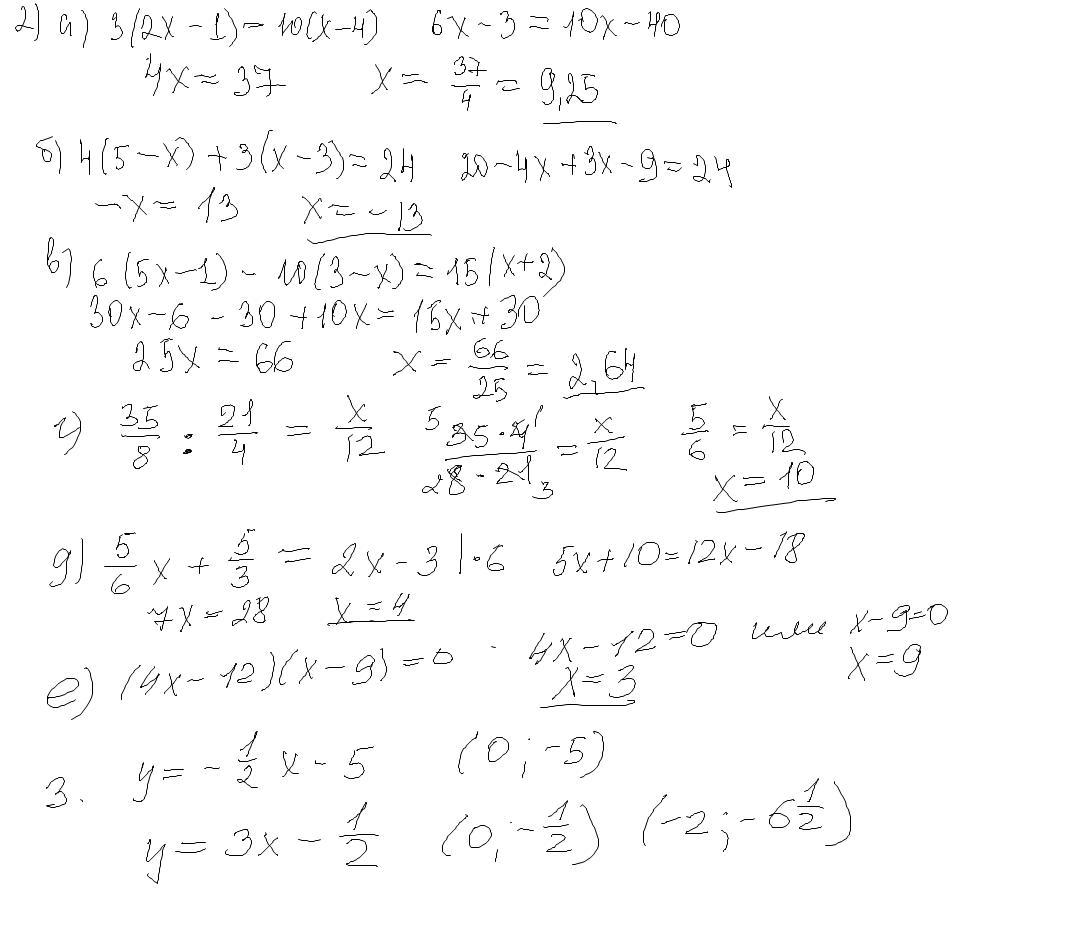 2) а) 3(2x-1)=10(x-4) 6x-3=10x-40
4x=37 x= 37/4 = 9,25
б) 4(5-x)+3(x-3)=24 20-4x+3x-9=24
-x=13 x=-13
в) 6(5x-1)-10(3-x)=15(x+2)
30x-6-30+10x=15x+30
25x=66 x= 66/25 = 2,64
г) 35/8 : 21/4 = x/12 5 35·4 1 / 2 8·21 3 = x/12 5/6 = x/12
x=10
д) 5/6 x + 5/3 = 2x-3 |·6 5x+10=12x-18
7x=28 x=4
е) (4x-12)(x-9)=0 · 4x-12=0 или x-9=0
x=3 x=9
3. y=-1/2 x-5 (0;-5)
y=3x-1/2 (0;-1/2) (-2;-6 1/2)